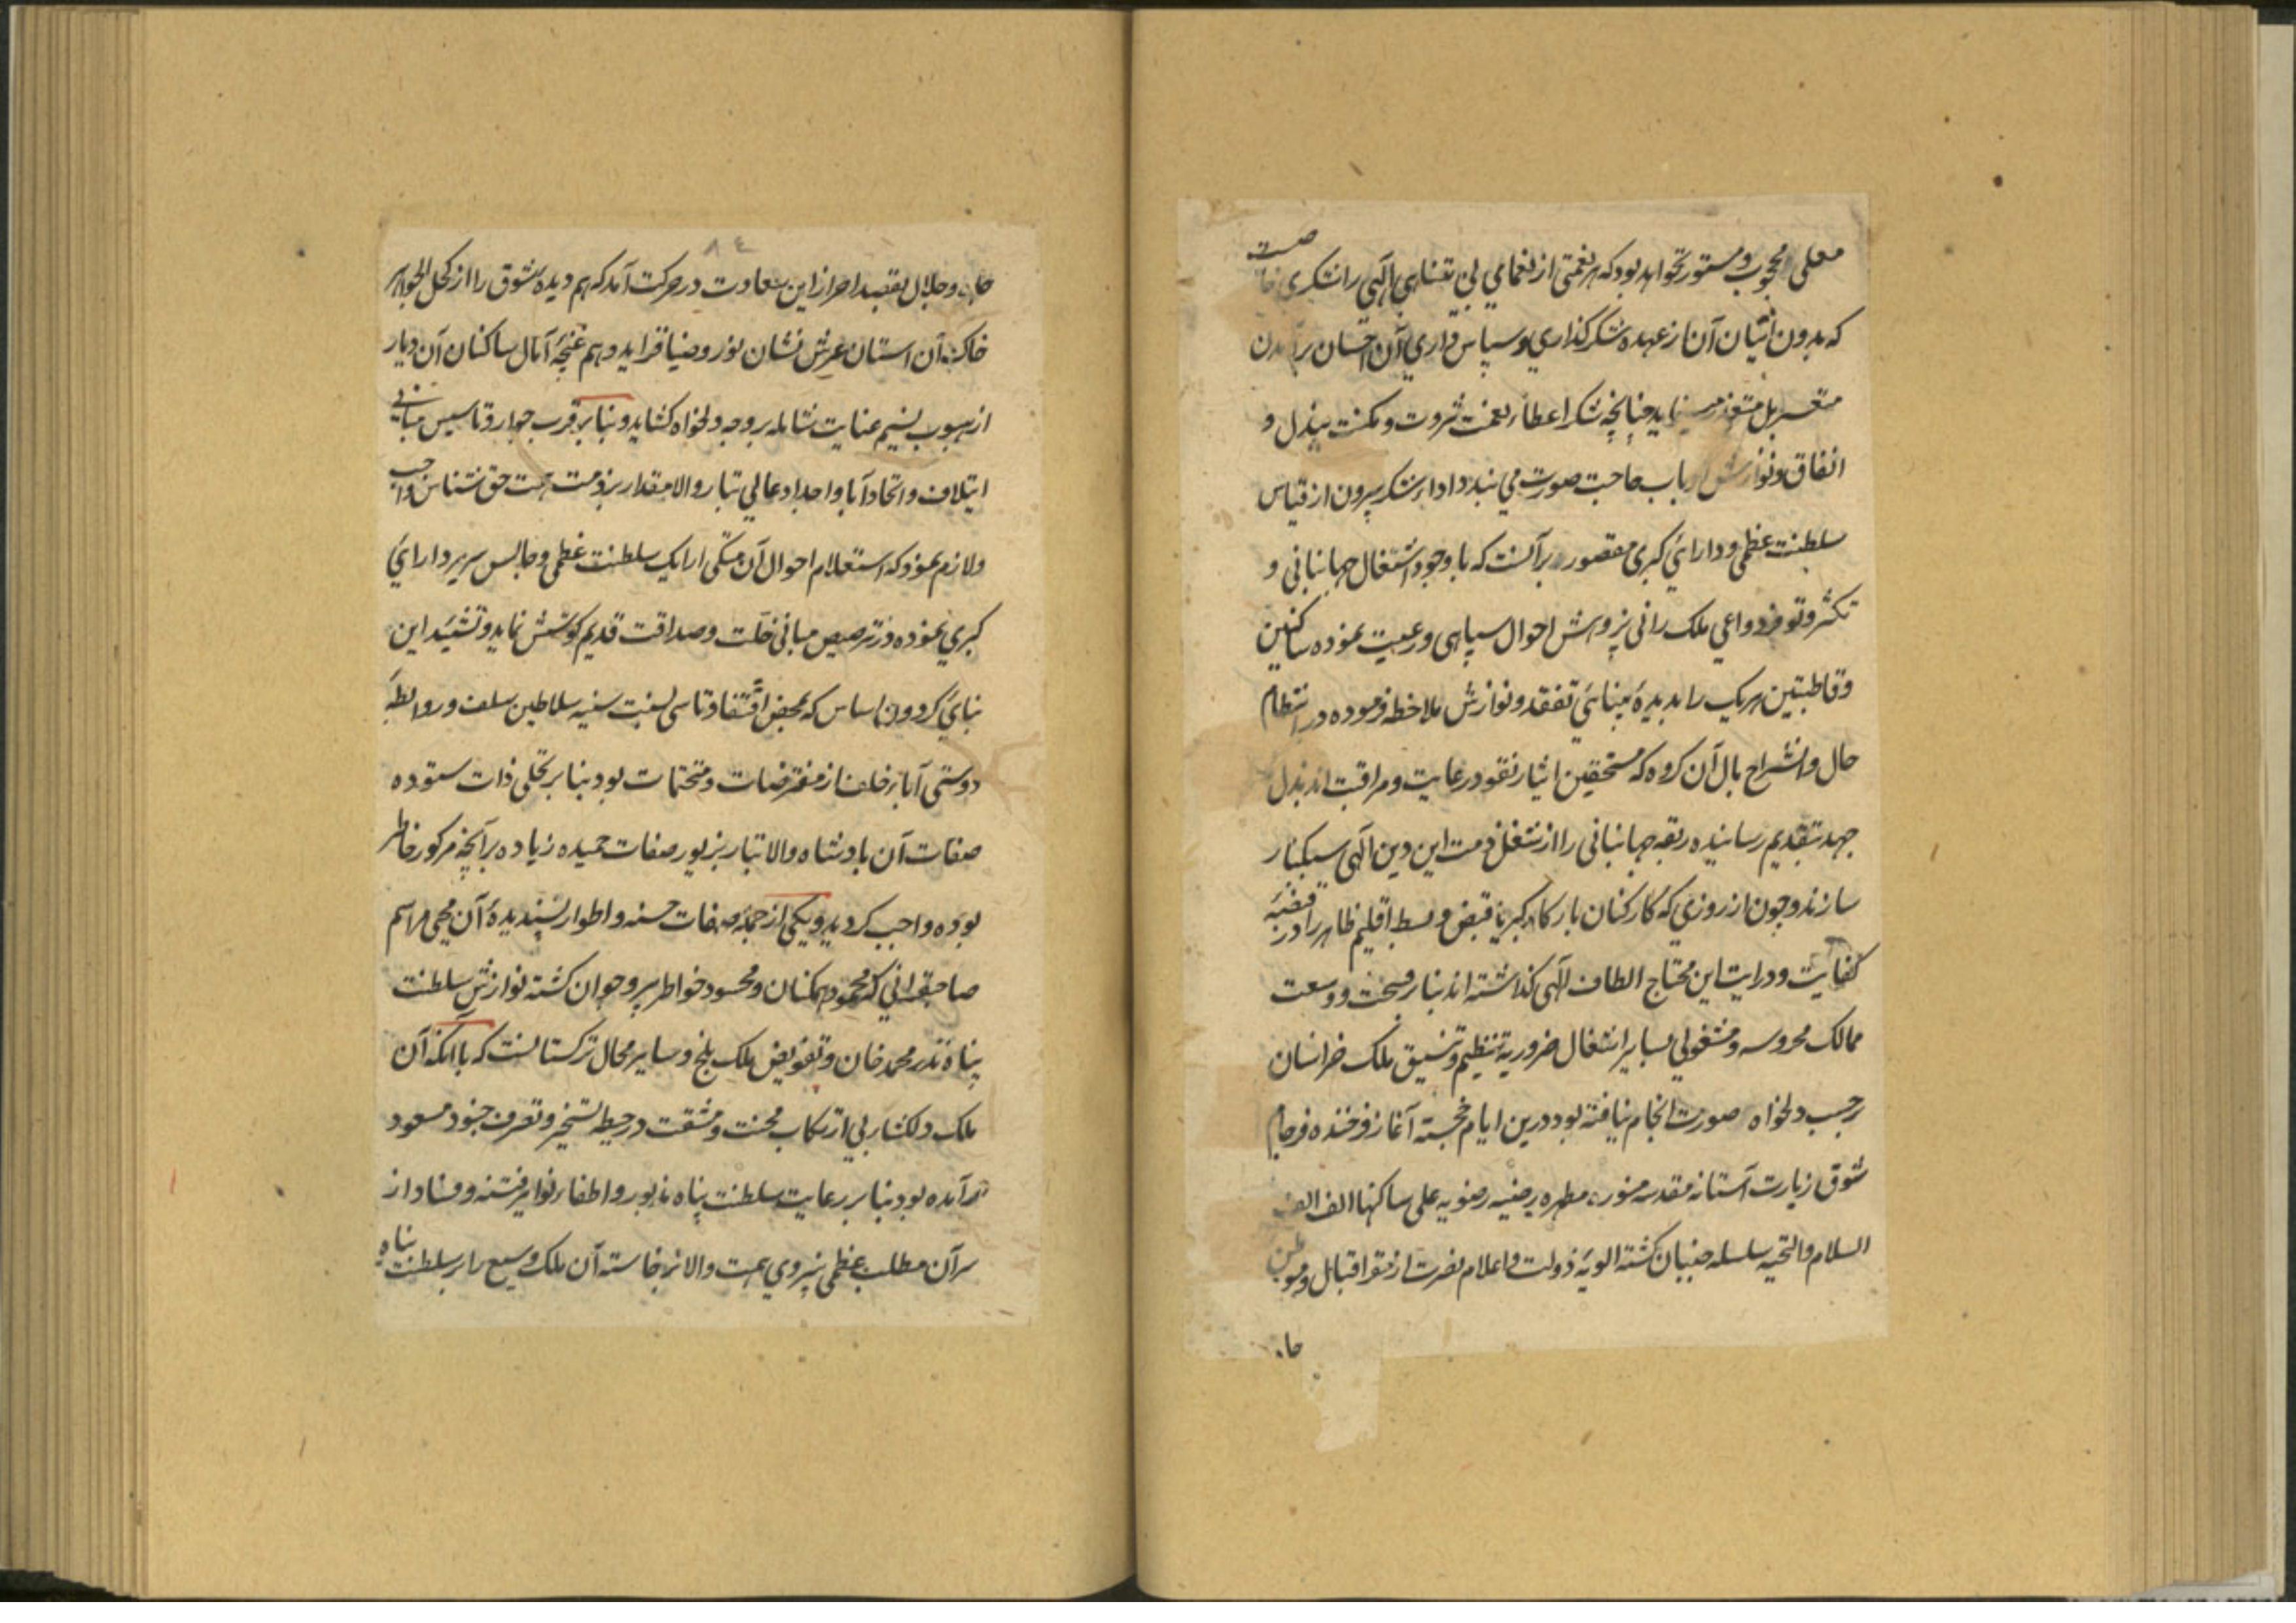 معلی محجوب و مستور نخواهد بود که هر نعمتی از نعمای بی تناهی الهی را شکری خاصست
که بدون اتیان آن از عهده شکر گذاری و سپاس داری آن احسان برآمدن
متعسر بل متعذر مینماید چنانچه شکر اعطاء نعمت ثروت و مکنت ببذل و
انفاق و نوازش ارباب حاجت صورت می بندد اداء شکر بیرون از قیاس
سلطنت عظمی و دارائی کبری مقصور بر آنست که با وجود اشتغال جهانبانی و
تکثر و توفر دواعی ملک رانی پژوهش احوال سپاهی و رعیت نموده ساکنین
و قاطبتین هریک را بدیدهٔ بینائی تفقد و نوازش ملاحظه فرموده در انتظام
حال و انشراح بال آن کروه که مستحقین ایثار نقود رعایت و مراقبت اند بذل
جهد بتقدیم رسانیده ربقه جهانبانی را از شغل ذمت این دین الهی سبکبار
سازند و چون از روزی که کارکنان بارکاه کبریا قبض و بسط اقلیم ظاهر را در قبضهٔ
کفایت و درایت این محتاج الطاف الهی کذاشته اند بنا بر فسحت و وسعت
ممالک محروسه و مشغولی بسایر اشغال ضروریه تنظیم و تنسیق ملک خراسان
بر حسب دلخواه صورت انجام نیافته بود درین ایام خجسته آغاز فرخنده فرجام
شوق زیارت آستانه مقدسه منوره مطهره رضیه رضویه علی ساکنها الف الف
السلام والتحیه سلسله جنبان کشته الویهٔ دولت و اعلام نصرت از مقر اقبال و موطن
جاه
٨٤
جاه و جلال بقصد احراز این سعادت در حرکت آمد که هم دیدهٔ شوق را از کحل الجواهر
خاک آن استان عرش نشان نور و ضیا فزاید و هم غنچهٔ آمال ساکنان آن دیار
از هبوب نسیم عنایت شامله بر وجه دلخواه کشاید و بنا بر قرب جوار و تاسیس مبانی
ایتلاف و اتحاد آبا و اجداد عالی تبار والا مقدار بر ذمت همت حق شناس واجب
و لازم نمود که استعلام احوال آن متکی ارایک سلطنت عظمی و جالس سریر دارائی
کبری نموده در ترصیص مبانی خلت و صداقت قدیم کوشش نماید و تشئید این
بنای کردون اساس که بمحض اقتفا و تاسی بسنت سنیه سلاطین سلف و روابط
دوستی آبا بر خلف از مفترضات و متحتمات بود بنا بر تحلی ذات ستوده
صفات آن بادشاه والا تبار بزیور صفات حمیده زیاده بر آنچه مرکوز خاطر
بوده واجب کردید و یکی از جمله صفات حسنه و اطوار پسندیدهٔ آن محیی مراسم
صاحبقرانی که محمود همکنان و محسود خواطر پیر و جوان کشته نوازش سلطنت
پناه نذر محمد خان و تفویض ملک بلخ و سایر محال ترکستانست که با آنکه آن
ملک دلکشا بی ارتکاب محنت و مشقت در حیطه تسخیر و تصرف جنود مسعود
درآمده بود بنا بر رعایت سلطنت پناه مذبور و اطفاء نوایر فتنه و فساد از
سر آن مطلب عظمی نیروی همت والا برخاسته آن ملک وسیع را بر سلطنت پناه